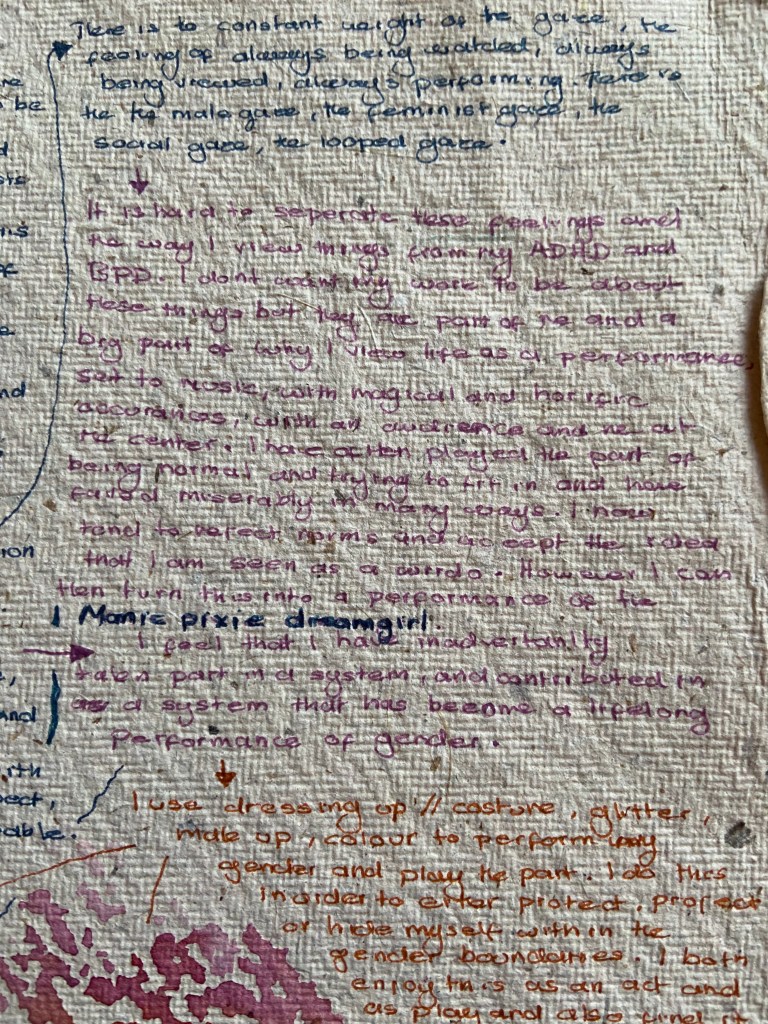 There is to constant weight of the gaze, the
feeling of always being watched, always
being viewed, always performing. There is
the the male gaze, the feminist gaze, the
social gaze, the looped gaze.
It is hard to seperate these feelings and
the way I view things from my ADHD and
BPD. I dont want my work to be about
these things but they are part of me and a
big part of why I view life as a performance,
set to music, with magical and horrific
with an and me at
the center. I have often played the part of
being normal and trying to fit in and have
failed miserably in many ways. I now
tend to reject norms and accept the
that I am seen as a weirdo. However I can
then turn this into a performance of the
Manic pixie dreamgirl.
I feel that I have inadvertantly
taken part in a system, and contributed in
a system that has become a lifelong
performance of gender.
I use dressing up // costure, glitter,
make up, colour to perform my
gender and play the part. I do this
in order to either protect, project
or hide myself within the
gender boundaries. I both
enjoy this as an act and
as play and also find it
and
ion
and
ect,
able.